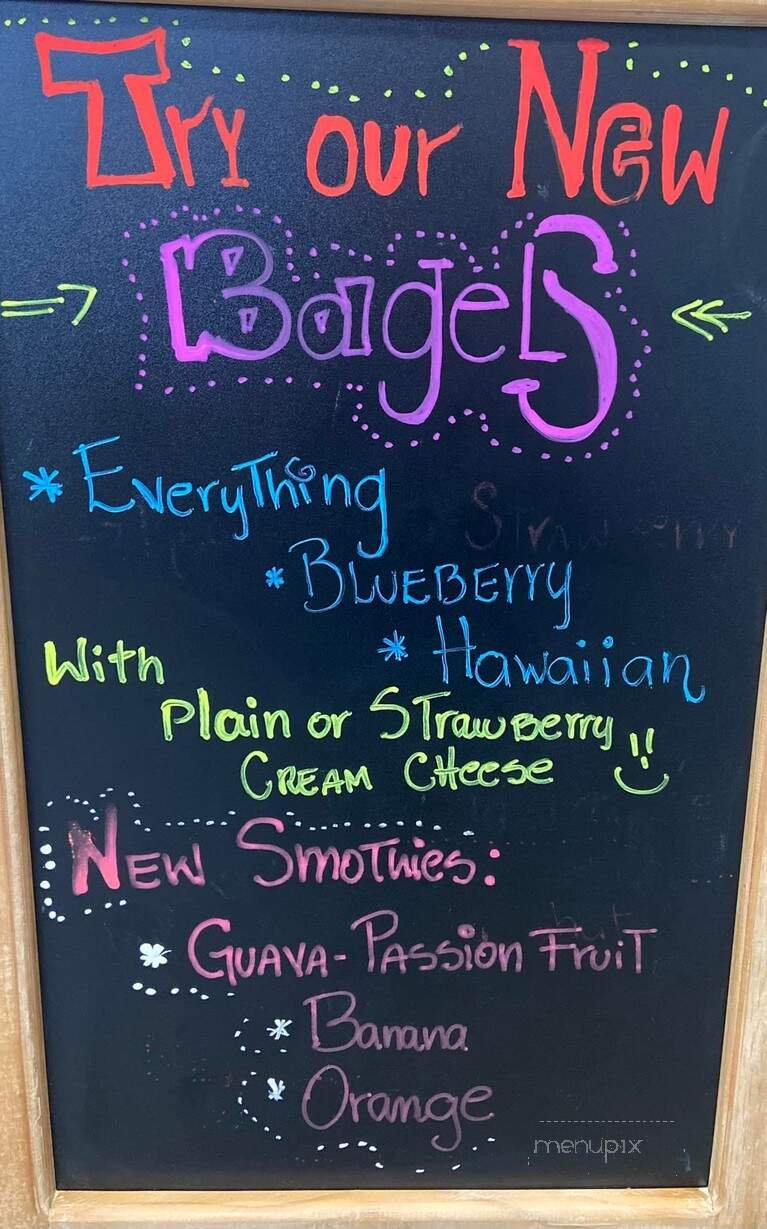 Try our New
Bagels
* Everything
Strawberry
* Blueberry
* Hawaiian
With
Plain or Strawberry
Cream Cheese
New Smothies:
* Guava-Passion Fruit
* Banana
* Orange
menupix